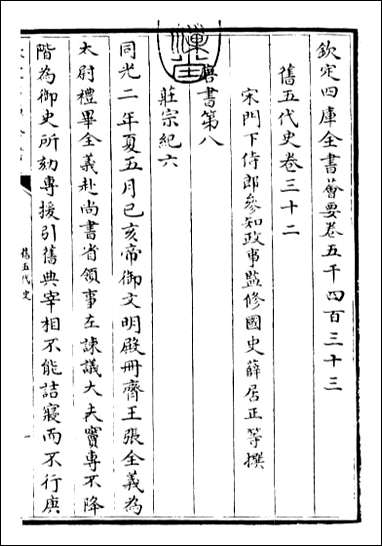 欽定四庫全書薈要卷五千四百三十三
舊五代史卷三十二
宋門下侍郎參知政事監修國史薛居正等撰
唐書第八
莊宗紀六
同光二年夏五月己亥帝御文明殿冊齊王張全義為
太尉禮畢全義赴尚書省領事左諫議大夫竇專不降
階為御史所劾專援引舊典宰相不能詰寢而不行庚
舊五代史
一